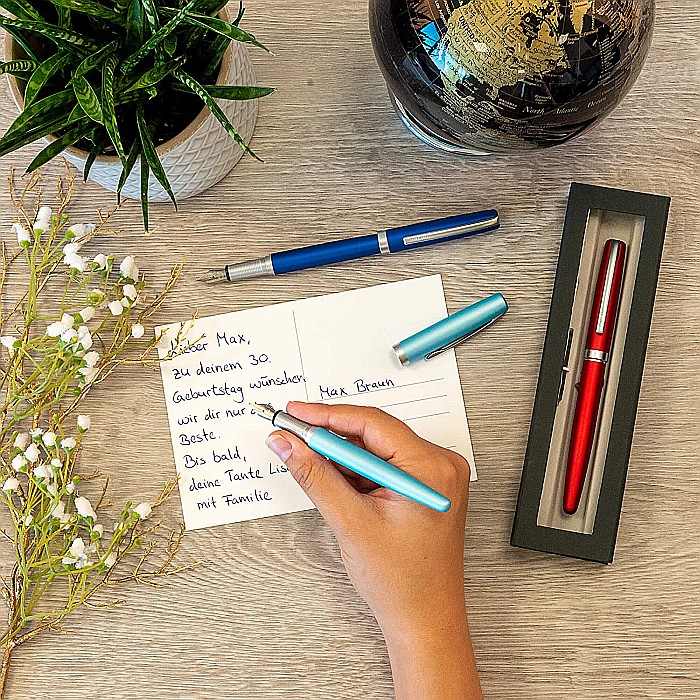 Lieber Max,
zu deinem 30.
Geburtstag wünschen
wir dir nur
Beste.
Bis bald,
deine Tante
mit Familie
Max Braun
North Atlantic Ocean